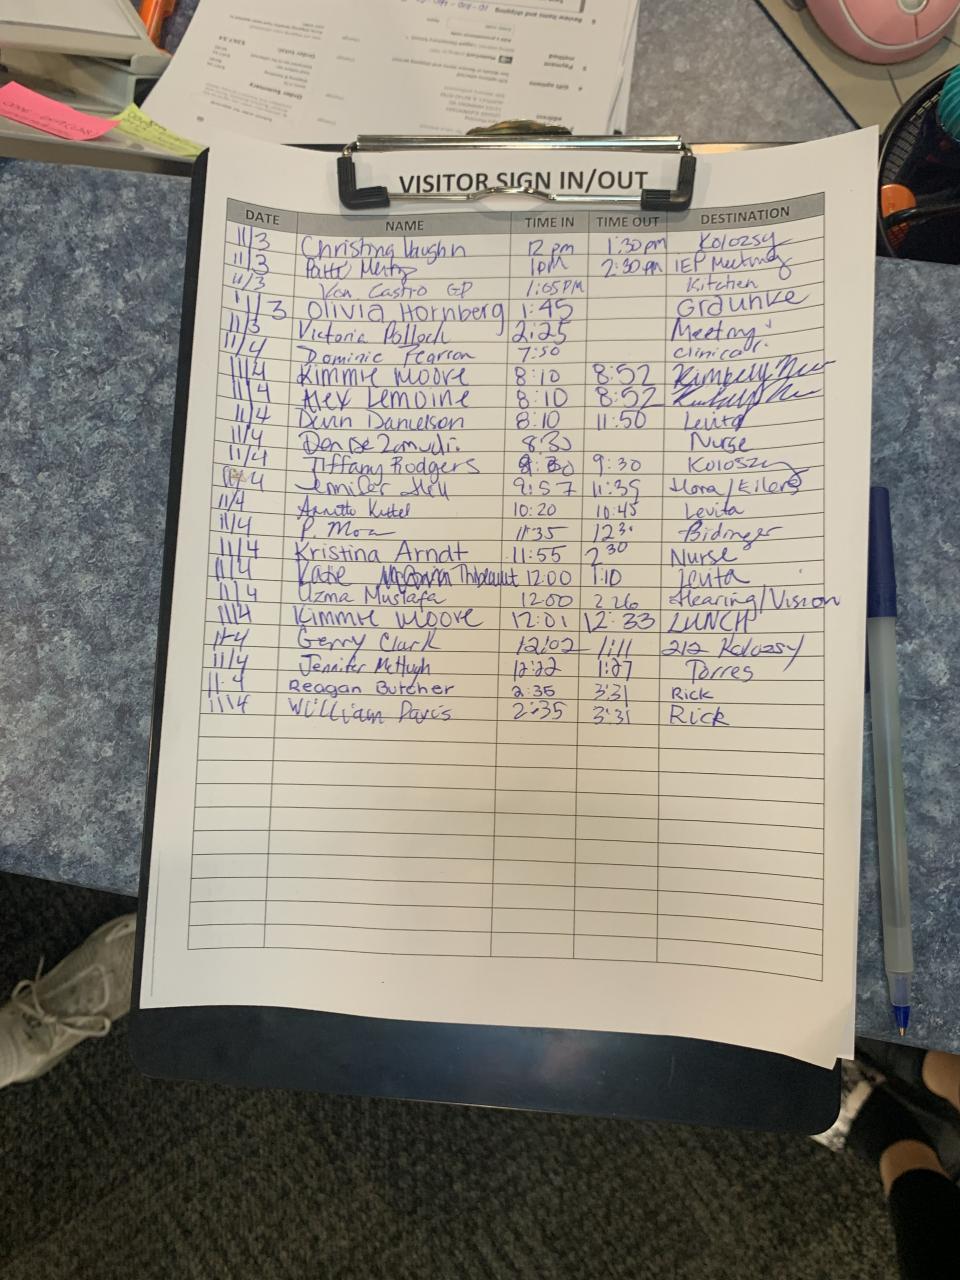 VISITOR SIGN IN/OUT
DATE NAME TIME IN TIME OUT DESTINATION
11/3 Christina Vaughn 12 pm 1:30 pm Kolozsy
11/3 Patti Mertz 1pm 2:30 pm IEP Meeting
11/3 Von Castro GP 1:05 PM Kitchen
11/3 Olivia Hornberg 1:45 Graunke
11/3 Victoria Pollock 2:25 Meeting
11/4 Dominic 7:50 Clinical
11/4 Kimmie Moore 8:10 8:52
11/4 Alex Lemoine 8:10 8:52
11/4 Devin Danielson 8:10 11:50 Levita
11/4 Denise 8:30 Nurse
11/4 Tiffany Rodgers 8:30 9:30 Koloszy
4 Jennifer 9:57 11:35 Hora/Eilers
11/4 Annette Kittel 10:20 10:45 Levita
11/4 P. 11:35 12 30 Bidinger
11/4 Kristina Arndt 11:55 2 30 Nurse
11/4 Katie Thibeault 12:00 1:10 Levita
11/4 Uzma Mustafa 12:00 2:26 Hearing/Vision
11/4 Kimmie Moore 12:01 12:33 LUNCH
11-4 Gerry Clark 12:02 1:11 212 Kolozsy
11/4 Jennifer McHugh 12:22 1:27 Torres
11-4 Reagan Butcher 2:35 3:31 Rick
11/4 William Davis 2:35 3:31 Rick